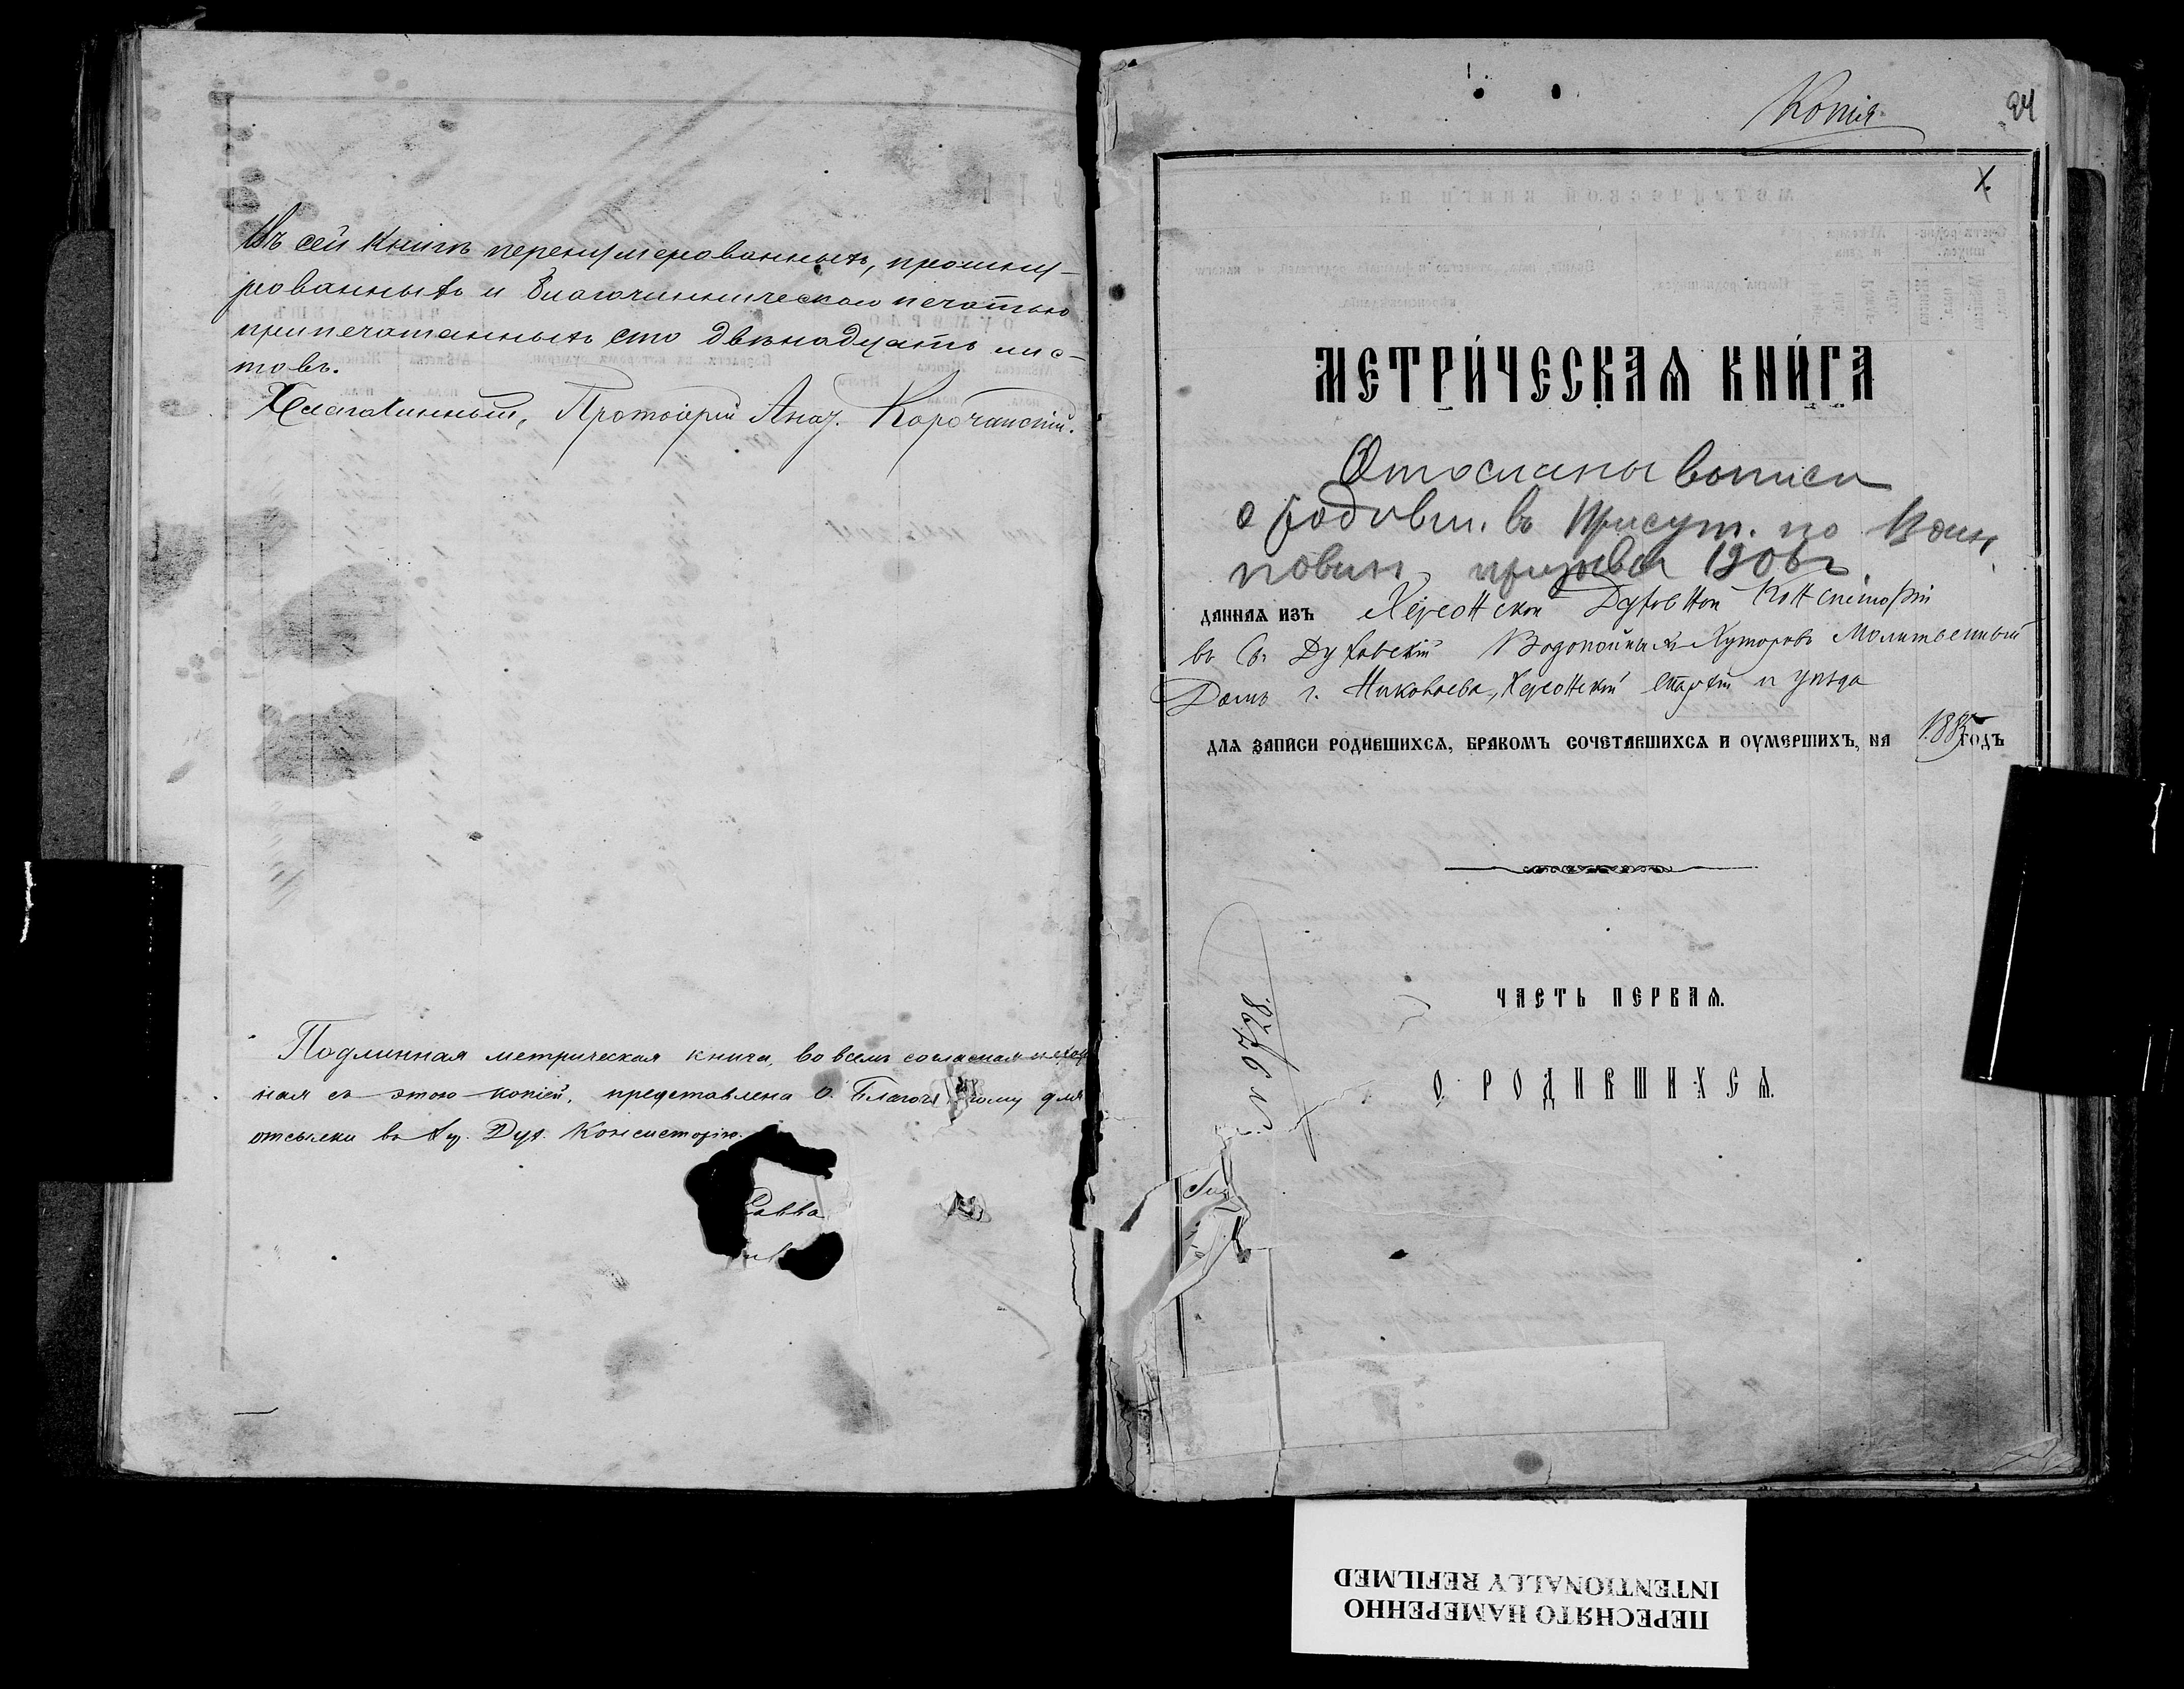 Въ сей книгѣ перенумерованныхъ, прошну-
рованныхъ и благочинническою печатью
припечатанныхъ сто двѣнадцать лис-
товъ.
Благочинный, Протоіерей Анаѳ. Корочанскій.
Подлинная метрическая книга, во всемъ согласная и сход
ная съ этою копіей, представлена О. Благочи ному для
отсылки въ Ду. Консисторію.
Савва
Копія
24
X
МЕТРИ́ЧЕСКАѦ КНИ́ГА
Отосланы выписи
о родивш. въ Присут. по Воин.
повин. призыва 1906 г
ДАННАѦ ИЗЪ Херсонской Духовной Консисторіи
въ Св. Духовскій Водопойныхъ Хуторовъ Молитвенный
Домъ г. Николаева, Херсонской Епархіи и уѣзда
ДЛѦ ЗАПИСИ РОДИВШИХСѦ, БРАКОМЪ СОЧЕТАВШИХСѦ И ОУМЕРШИХЪ, НА 1885 ГОДЪ
ЧАСТЬ ПЕРВАѦ.
О РОДИВШИХСѦ.
№ 9728.
ПЕРЕСНЯТО НАМЕРЕННО
INTENTIONALLY REFILMED